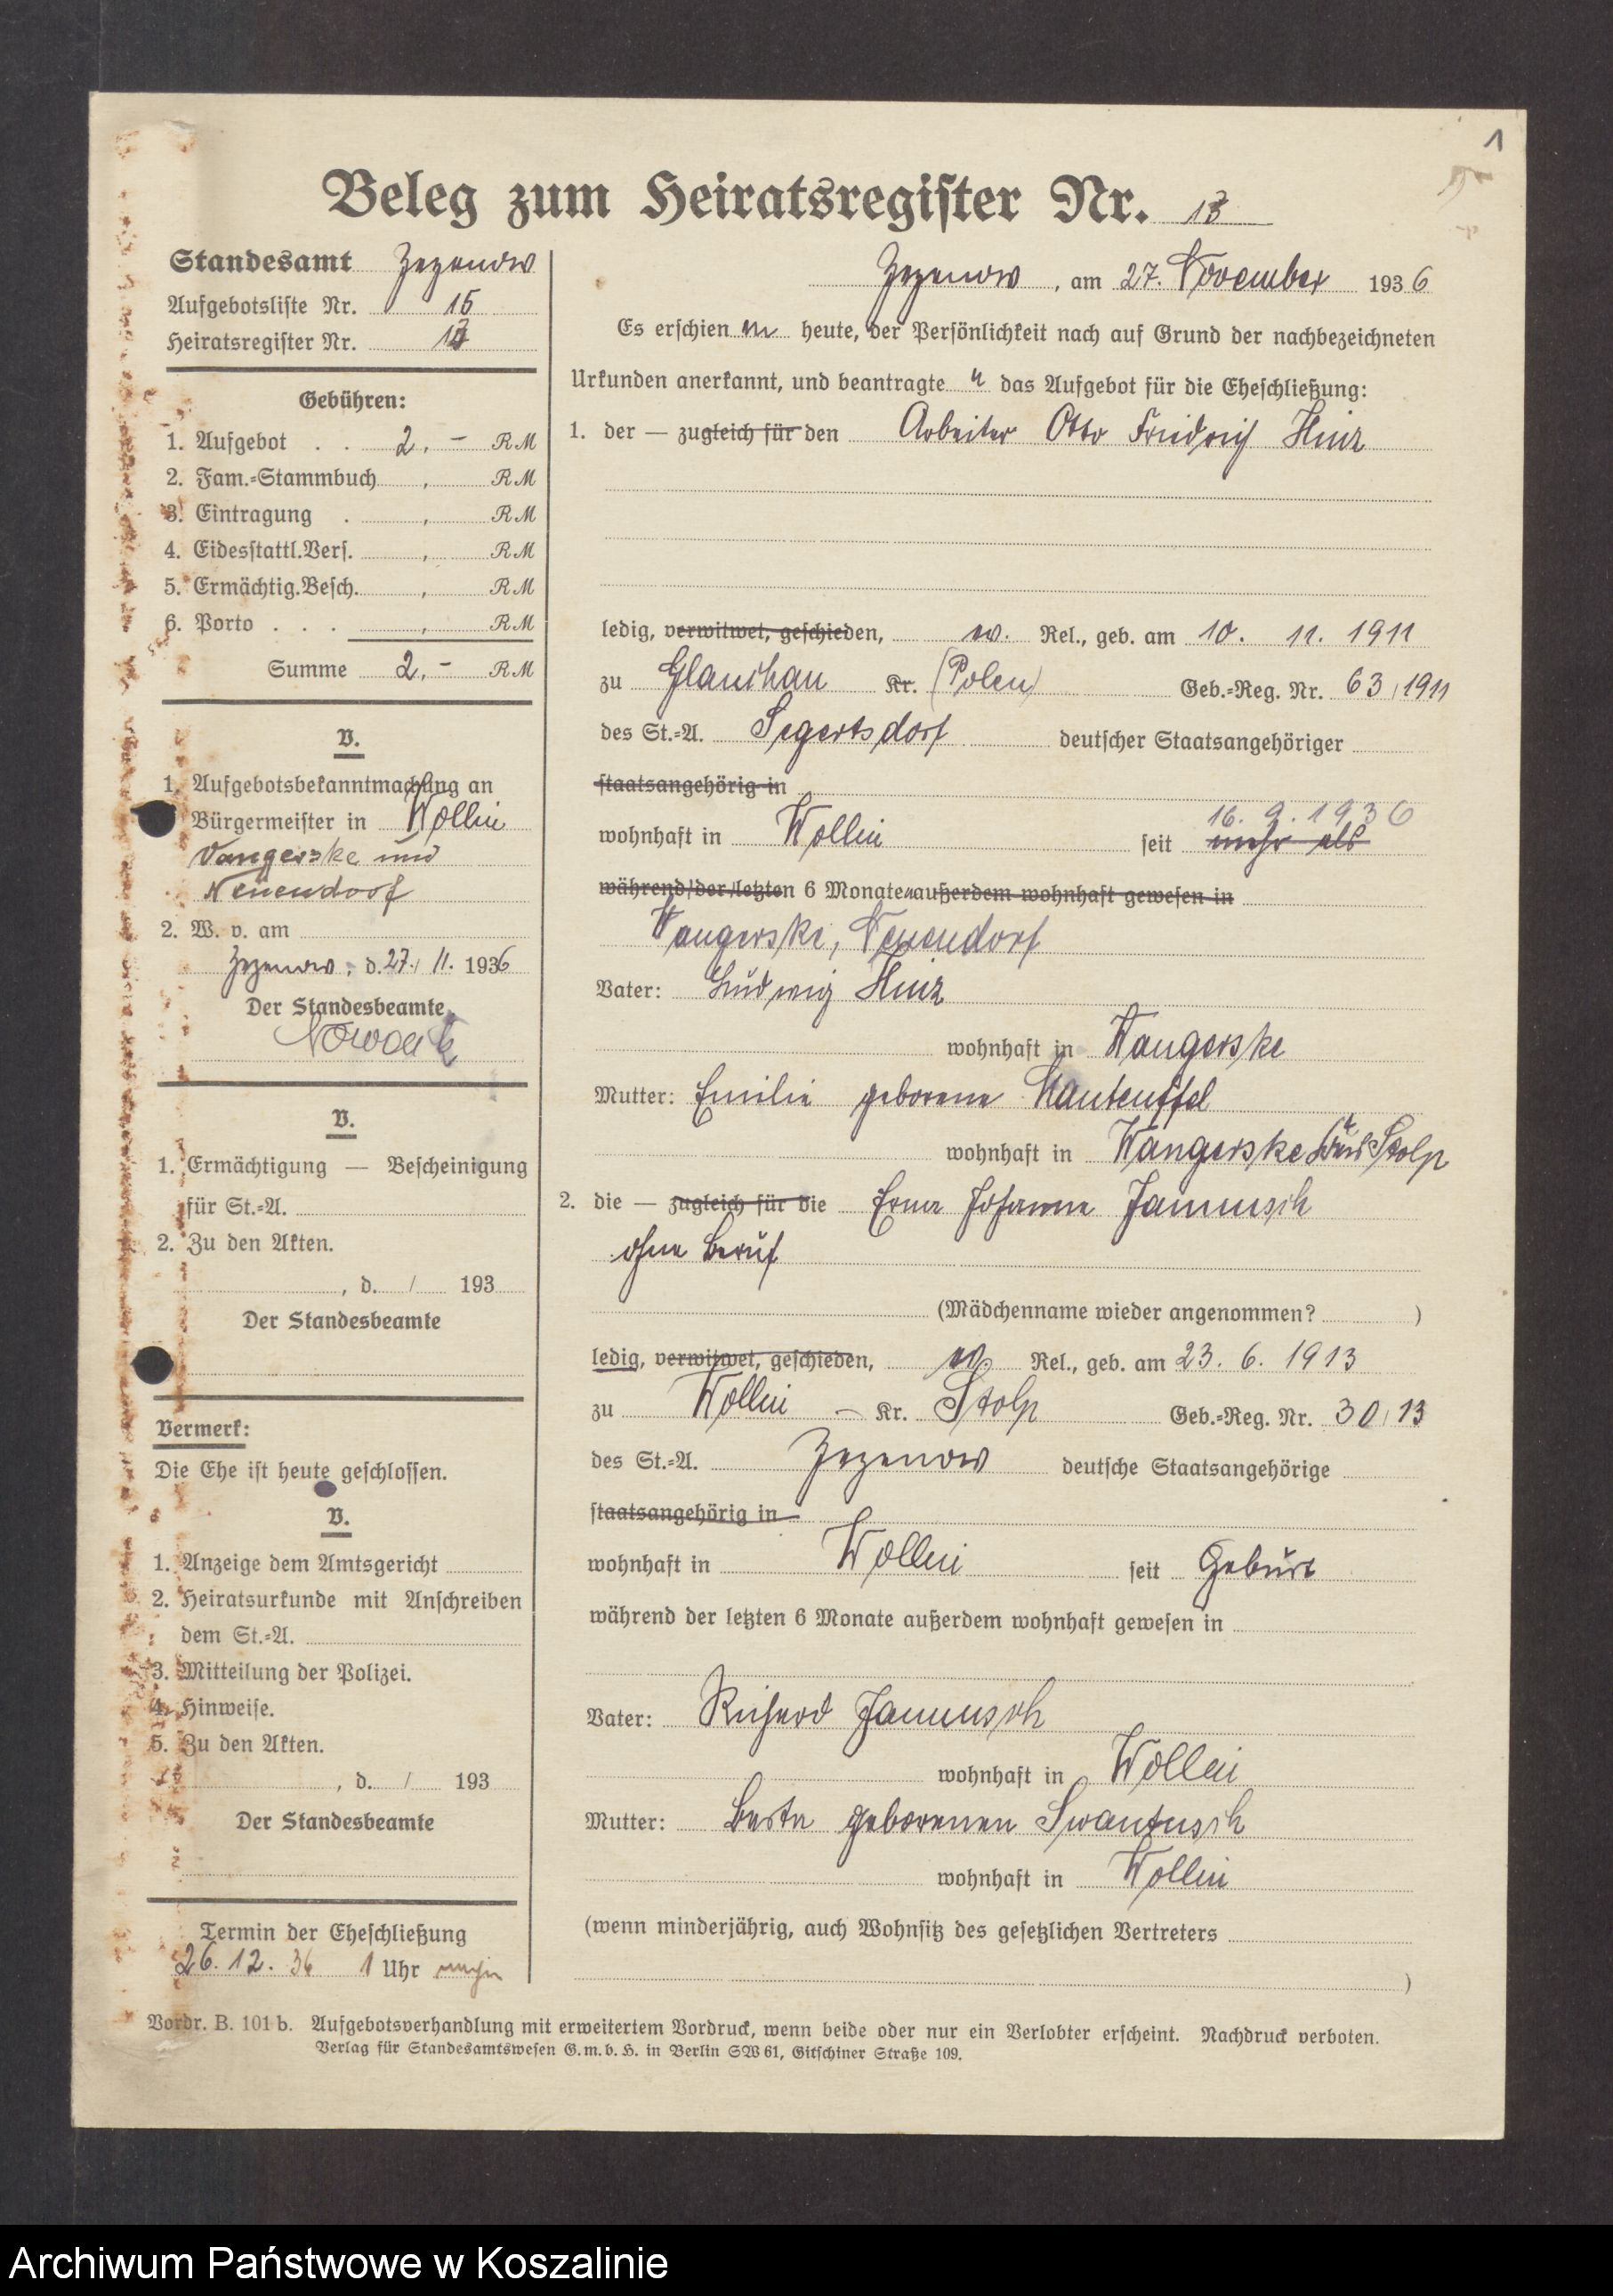 1
Beleg zum Heiratsregister Nr. 13
Standesamt Zezenow
Aufgebotsliste Nr. 15
Heiratsregister Nr. 13
Gebühren:
1. Aufgebot . . 2,- RM
2. Fam.-Stammbuch , RM
3. Eintragung . , RM
4. Eidesstattl.Vers. , RM
5. Ermächtig.Besch. , RM
6. Porto . . . , RM
Summe 2,- RM
V.
1. Aufgebotsbekanntmachung an
Bürgermeister in Wollin
Vangerske und
Neuendorf
2. W. v. am
Zezenow, d. 27./11. 1936
Der Standesbeamte
Nowack
V.
1. Ermächtigung — Bescheinigung
für St.-A.
2. Zu den Akten.
, d. / 193
Der Standesbeamte
Vermerk:
Die Ehe ist heute geschlossen.
V.
1. Anzeige dem Amtsgericht
2. Heiratsurkunde mit Anschreiben
dem St.-A.
3. Mitteilung der Polizei.
4. Hinweise.
5. Zu den Akten.
, d. / 193
Der Standesbeamte
Termin der Eheschließung
26. 12. 36 1 Uhr
Zezenow, am 27. November 1936
Es erschienen heute, der Persönlichkeit nach auf Grund der nachbezeichneten
Urkunden anerkannt, und beantragten das Aufgebot für die Eheschließung:
1. der — zugleich für den Arbeiter Otto Friedrich Hinz
ledig, verwitwet, geschieden, ev. Rel., geb. am 10. 11. 1911
zu Glauchau Kr. (Polen) Geb.-Reg. Nr. 63/1911
des St.-A. Segertsdorf deutscher Staatsangehöriger
staatsangehörig in
wohnhaft in Wollin seit mehr als 16. 9. 1936
während der letzten 6 Monaten außerdem wohnhaft gewesen in
Vangerske, Neuendorf
Vater: Ludwig Hinz
wohnhaft in Wangerske
Mutter: Emilie geborene Manteuffel
wohnhaft in Wangerske Stolp
2. die — zugleich für die Erna Johanna Jannusch
ohne Beruf
(Mädchenname wieder angenommen? )
ledig, verwitwet, geschieden, ev. Rel., geb. am 23. 6. 1913
zu Wollin - Kr. Stolp Geb.-Reg. Nr. 30/13
des St.-A. Zezenow deutsche Staatsangehörige
staatsangehörig in
wohnhaft in Wollin seit Geburt
während der letzten 6 Monate außerdem wohnhaft gewesen in
Vater: Richard Jannusch
wohnhaft in Wollin
Mutter: Berta geborenen Swantusch
wohnhaft in Wollin
(wenn minderjährig, auch Wohnsitz des gesetzlichen Vertreters
)
Vordr. B. 101 b. Aufgebotsverhandlung mit erweitertem Vordruck, wenn beide oder nur ein Verlobter erscheint. Nachdruck verboten.
Verlag für Standesamtswesen G.m.b.H. in Berlin SW 61, Gitschiner Straße 109.
Archiwum Państwowe w Koszalinie